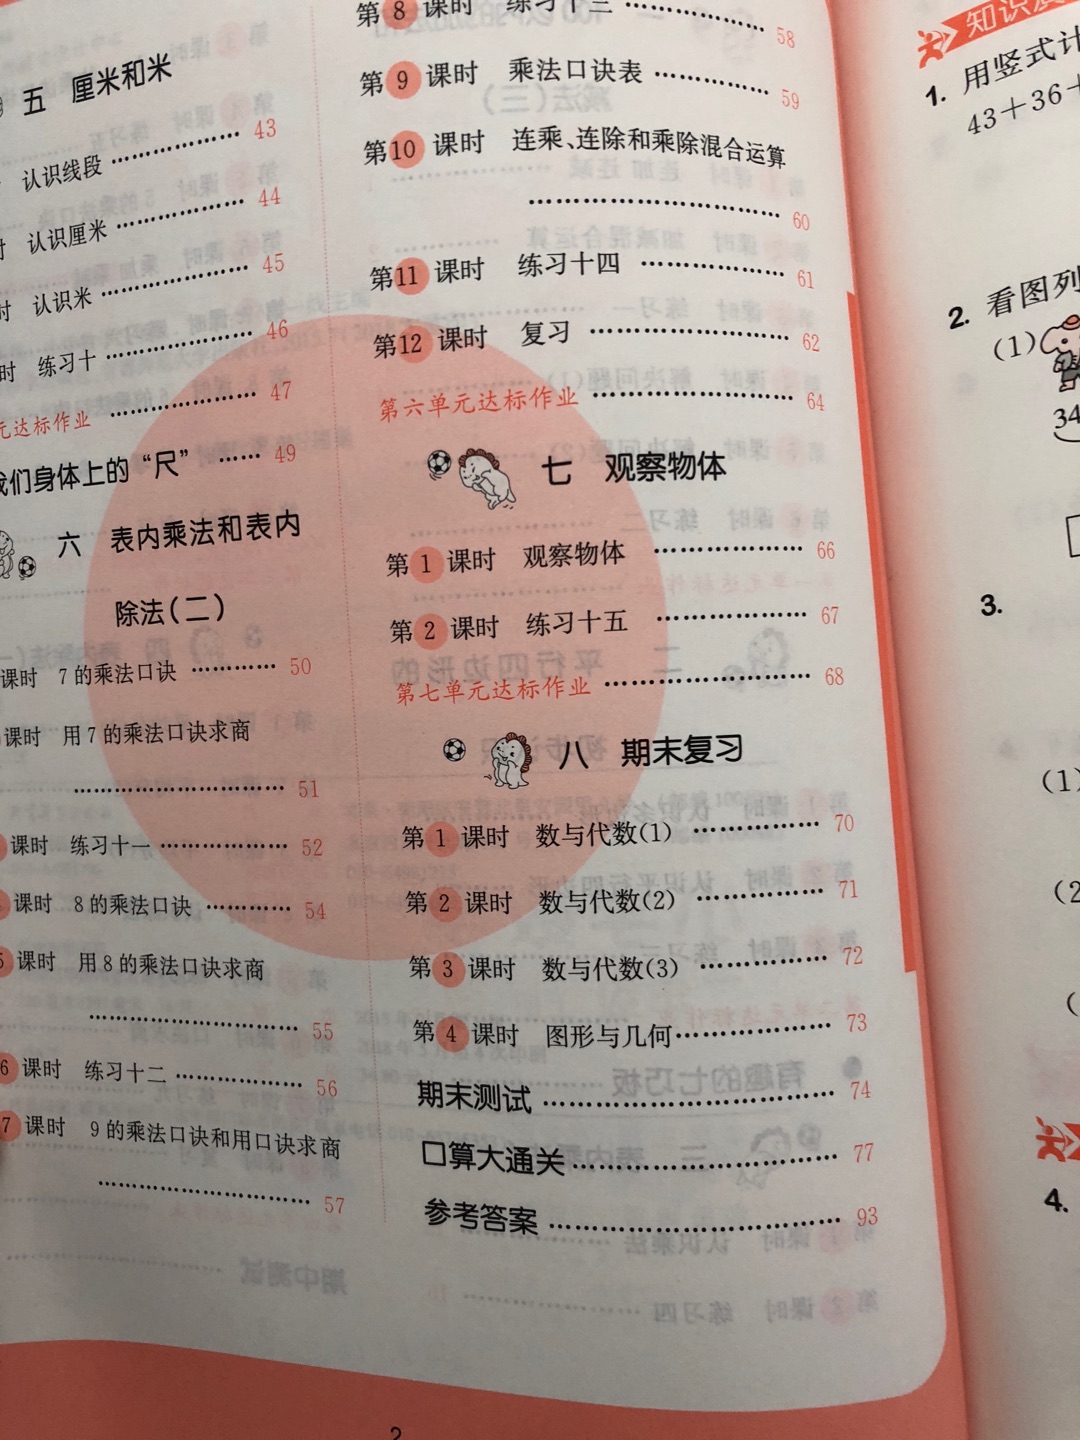 五 厘米和米
认识线段 …… 43
时 认识厘米 …… 44
时 认识米 …… 45
时 练习十 …… 46
元达标作业 …… 47
我们身体上的“尺” …… 49
六 表内乘法和表内
除法(二)
课时 7的乘法口诀 …… 50
课时 用7的乘法口诀求商
…… 51
课时 练习十一 …… 52
课时 8的乘法口诀 …… 54
5 课时 用8的乘法口诀求商
…… 55
6 课时 练习十二 …… 56
7 课时 9的乘法口诀和用口诀求商
…… 57
第8课时 练习十三 …… 58
第9课时 乘法口诀表 …… 59
第10课时 连乘、连除和乘除混合运算
…… 60
第11课时 练习十四 …… 61
第12课时 复习 …… 62
第六单元达标作业 …… 64
七 观察物体
第1课时 观察物体 …… 66
第2课时 练习十五 …… 67
第七单元达标作业 …… 68
八 期末复习
第1课时 数与代数(1) …… 70
第2课时 数与代数(2) …… 71
第3课时 数与代数(3) …… 72
第4课时 图形与几何 …… 73
期末测试 …… 74
口算大通关 …… 77
参考答案 …… 93
2
知识
1. 用竖式计
43+36+
2. 看图列
(1)
34
3.
(1)
(2
(
4.